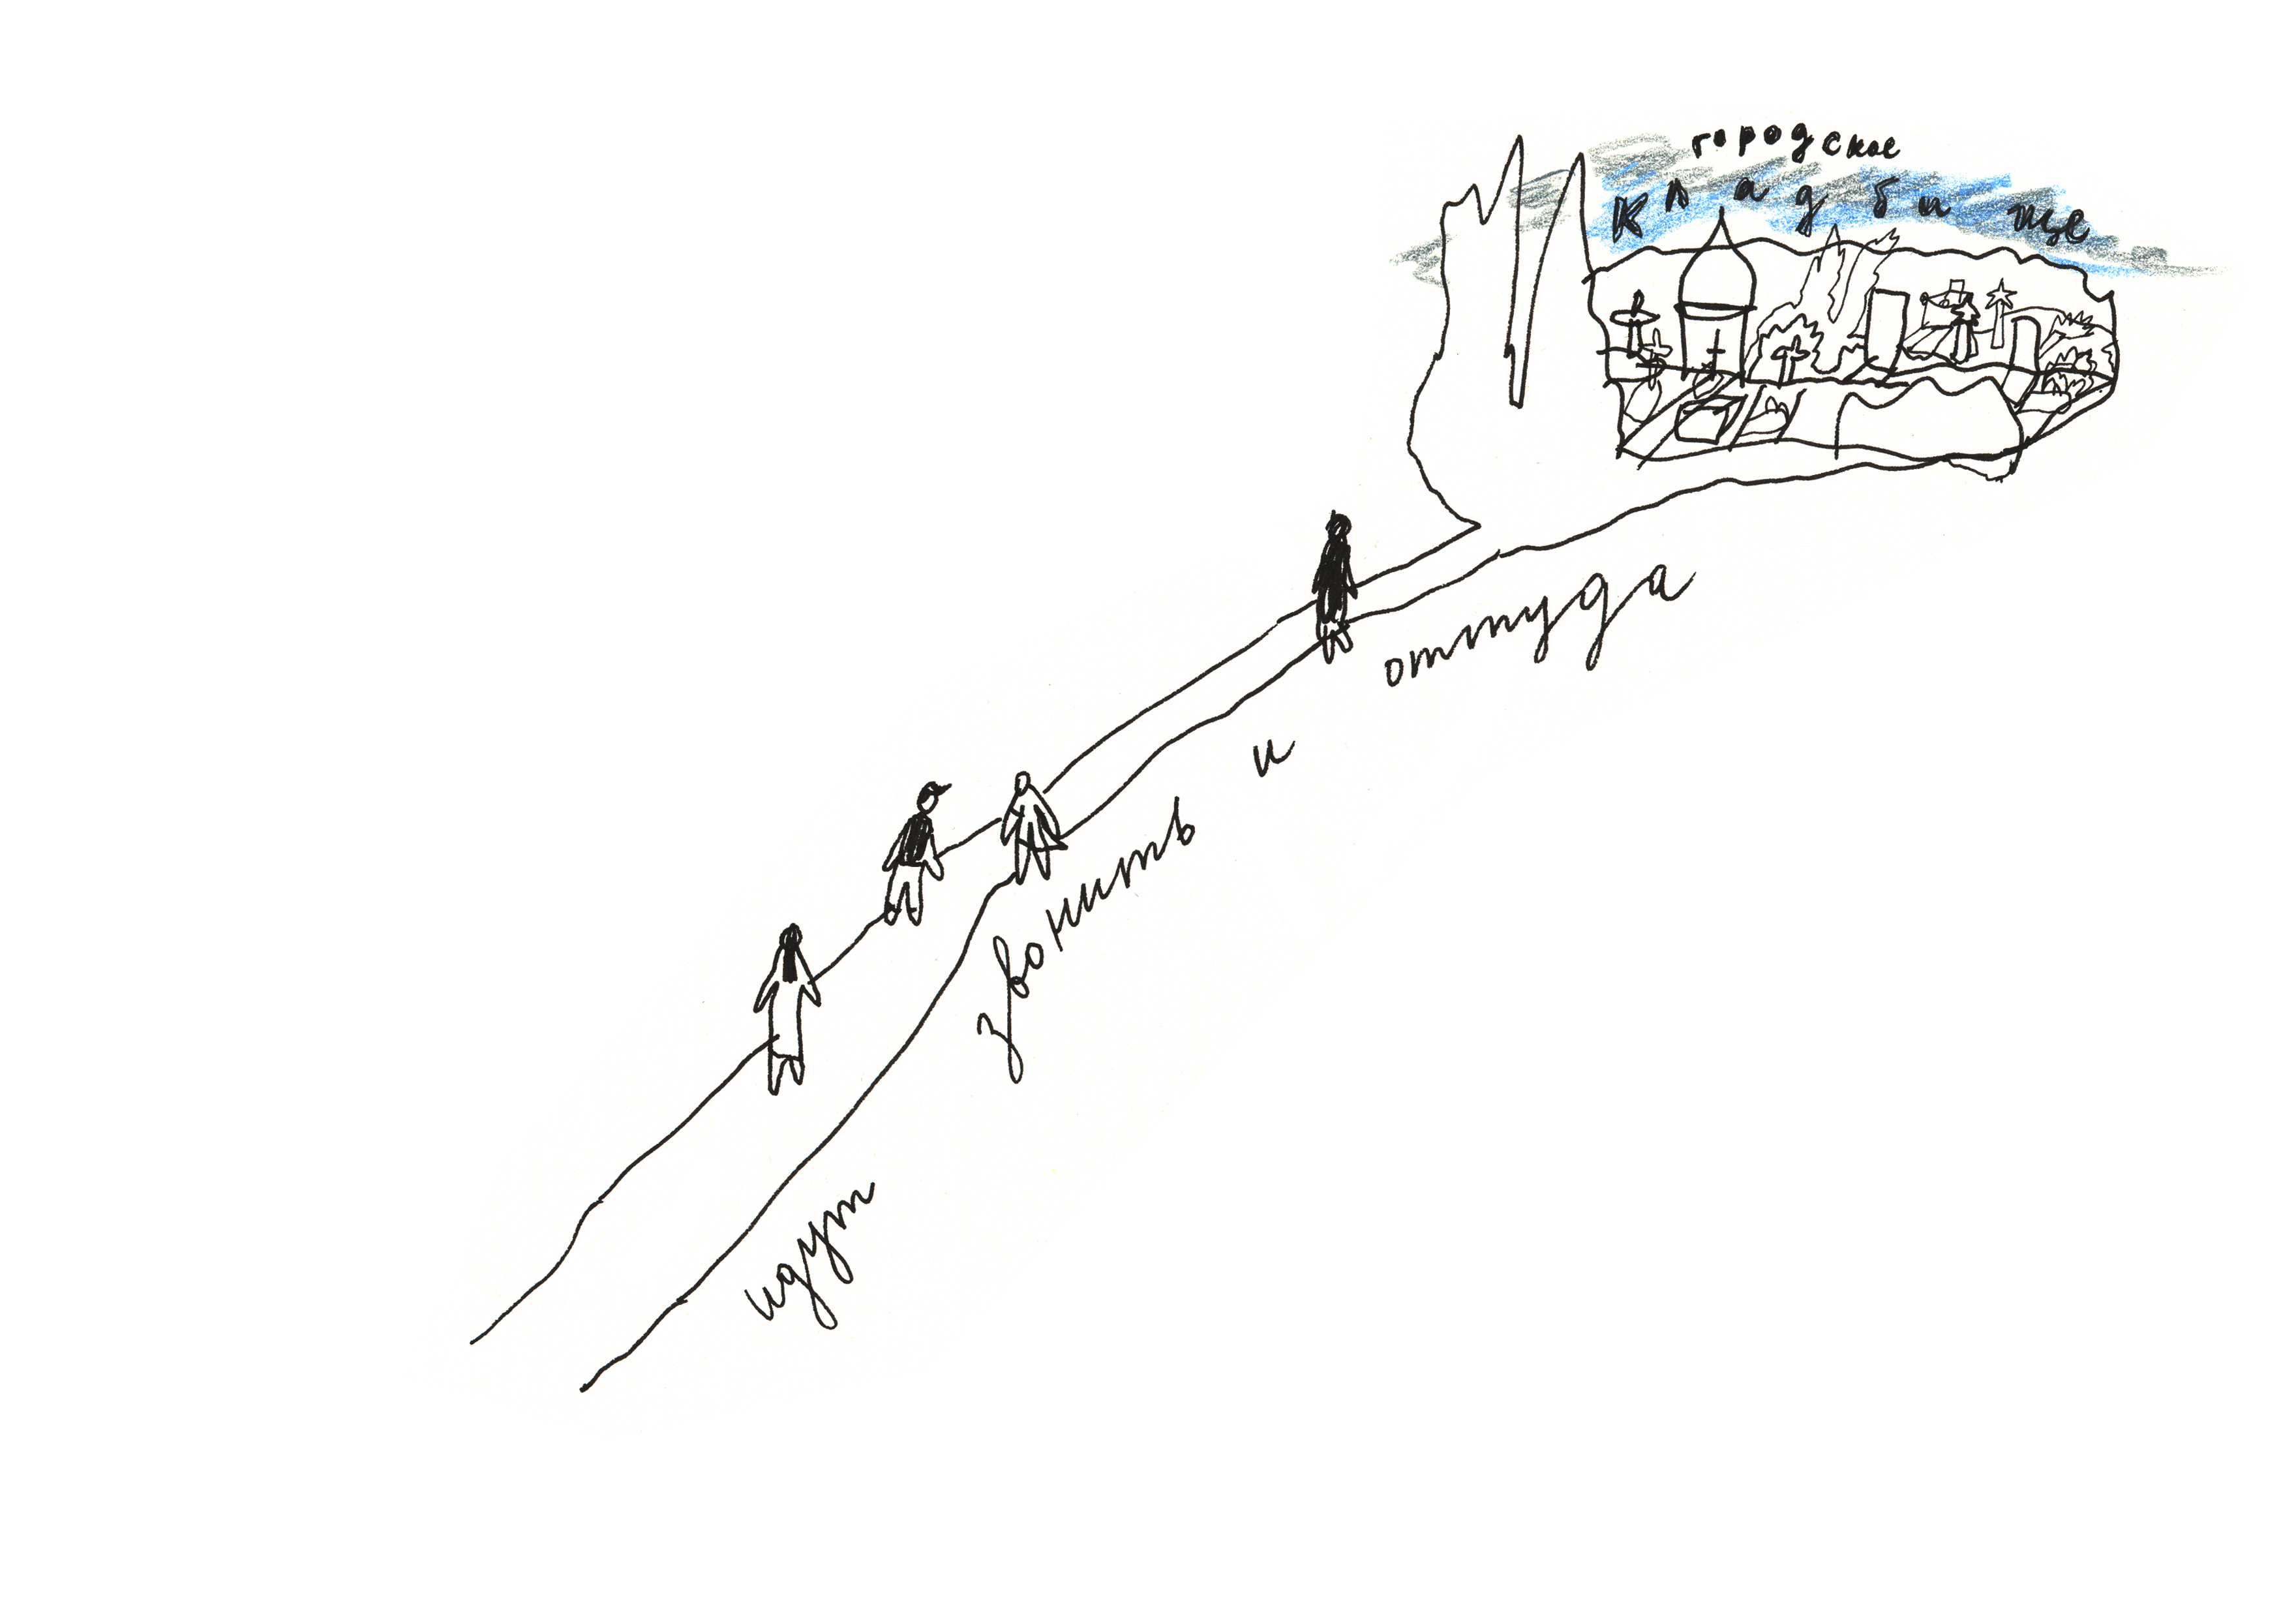 городское
кладбище
идут звонить и оттуда